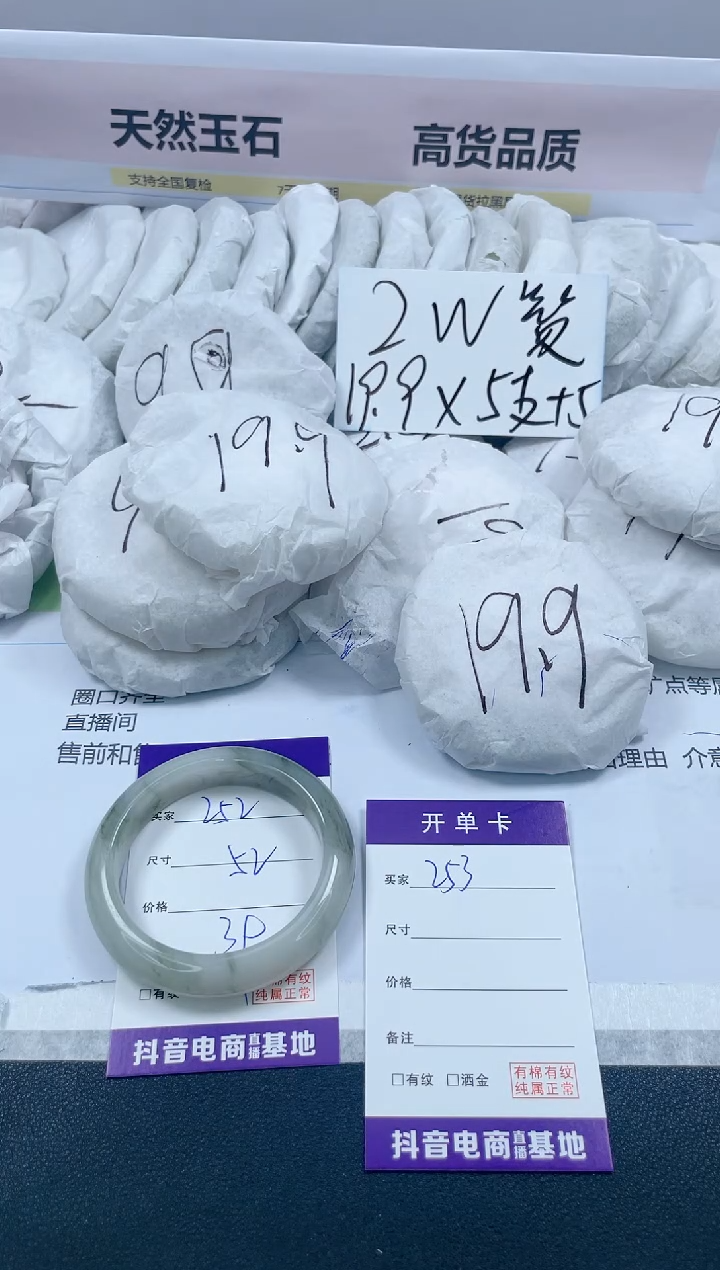 天然玉石 高货品质
支持全国复检
2W
19.9X5支+5
19.9
19.9
19
圈口
直播间
售前和售
矿点等
理由 介意
买家 252
尺寸 52
价格
3P
□有纹
有棉有纹
纯属正常
抖音电商直播基地
开单卡
买家 253
尺寸
价格
备注
□有纹 □洒金
有棉有纹
纯属正常
抖音电商直播基地